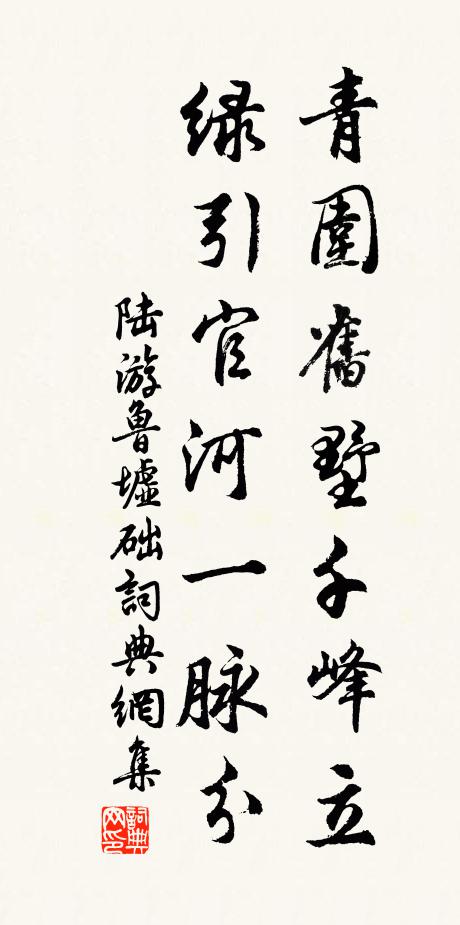 青圍舊墅千峰立
绿引官河一脉分
陆游魯墟础詞典網集
詞典网印